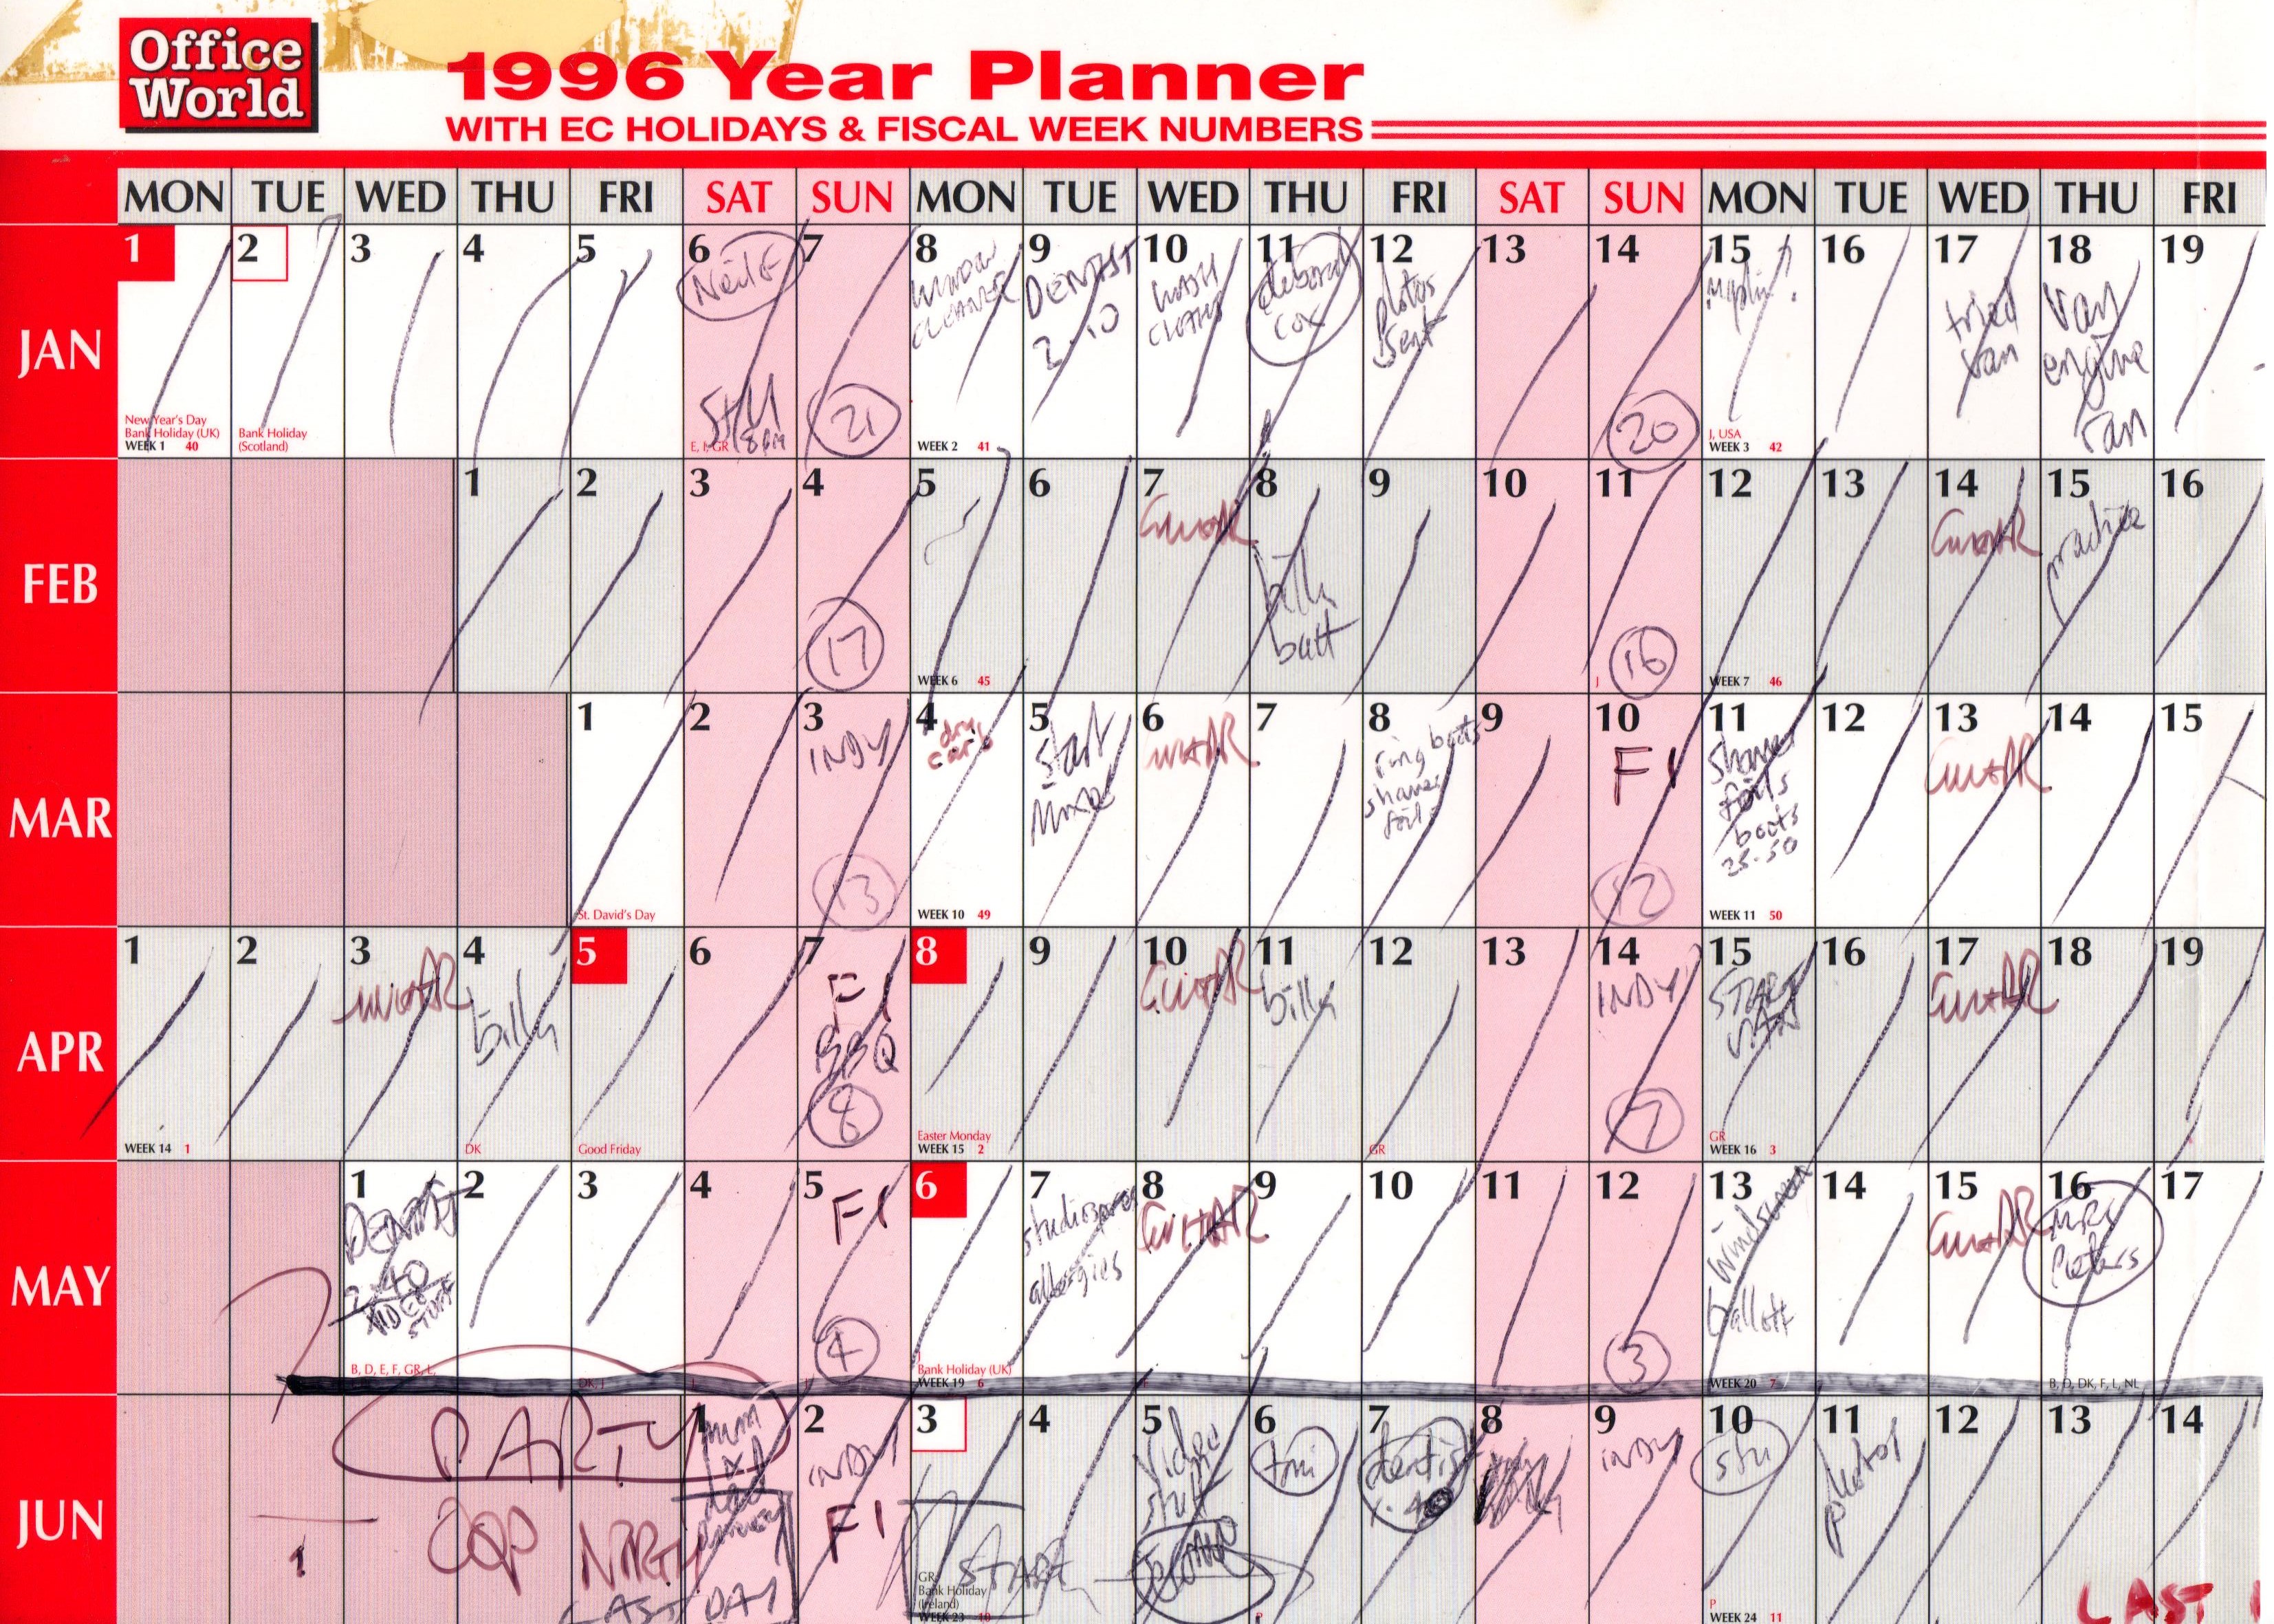 Office
World
1996 Year Planner
WITH EC HOLIDAYS & FISCAL WEEK NUMBERS
MON TUE WED THU FRI SAT SUN MON TUE WED THU FRI SAT SUN MON TUE WED THU FRI
JAN
1 2 3 4 5 6 7 8 9 10 11 12 13 14 15 16 17 18 19
WINDOW
CLEANER
DENTIST
2.10
WASH
CLOTHES
debora
cox
photos
sent
tried
van
van
engine
ran
8pm
21
20
New Year's Day
Bank Holiday (UK)
WEEK 1 40
Bank Holiday
(Scotland)
E, I, GR
WEEK 2 41
J, USA
WEEK 3 42
FEB
1 2 3 4 5 6 7 8 9 10 11 12 13 14 15 16
GWAR
GWAR
practice
billy
butt
17
16
WEEK 6 45
J
WEEK 7 46
MAR
1 2 3 4 5 6 7 8 9 10 11 12 13 14 15
INDY
start
GWAR
ring boots
shaver
foils
F1
shaver
foils
boots
25.50
GWAR
13
12
St. David's Day
WEEK 10 49
WEEK 11 50
APR
1 2 3 4 5 6 7 8 9 10 11 12 13 14 15 16 17 18 19
GWAR
billy
F1
BBQ
8
GWAR
billy
INDY
7
START
VAN
GWAR
WEEK 14 1
DK
Good Friday
Easter Monday
WEEK 15 2
GR
GR
WEEK 16 3
MAY
1 2 3 4 5 6 7 8 9 10 11 12 13 14 15 16 17
DENTIST
2.40
VIDEO
STUFF
F1
4
allergies
GWAR
3
GWAR
MRS
Peters
B, D, E, F, GR, L,
DK, J
J
Bank Holiday (UK)
WEEK 19 6
WEEK 20 7
B, D, DK, F, L, NL
JUN
1 2 3 4 5 6 7 8 9 10 11 12 13 14
PARTY
mum
INDY
F1
video
stuff
toni
dentist
INDY
stu
NORTH
LAST DAY
START
GR
Bank Holiday
(Ireland)
WEEK 23 10
P
P
WEEK 24 11
LAST